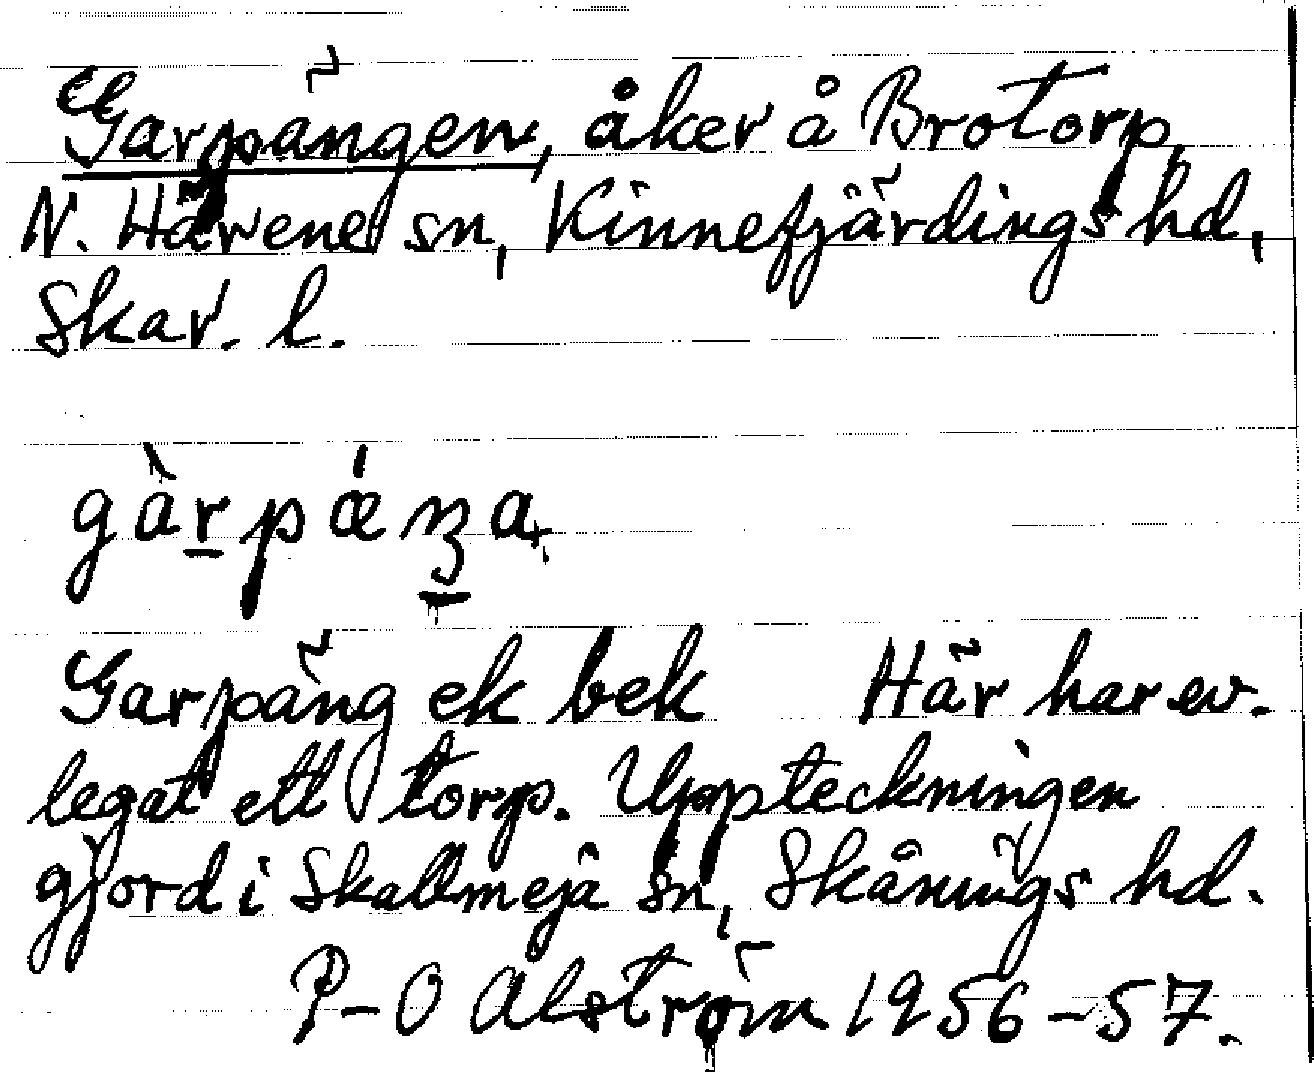 Garpängen, åker å Brotorp,
N. Härene sn, Kinnefjärdings hd,
Skar. l.
gàrpǽŋa
Garpäng ek bek Här har ev.
legat ett torp. Uppteckningen
gjord i Skallmeja sn, Skånings hd.
P-O Alström 1956-57.